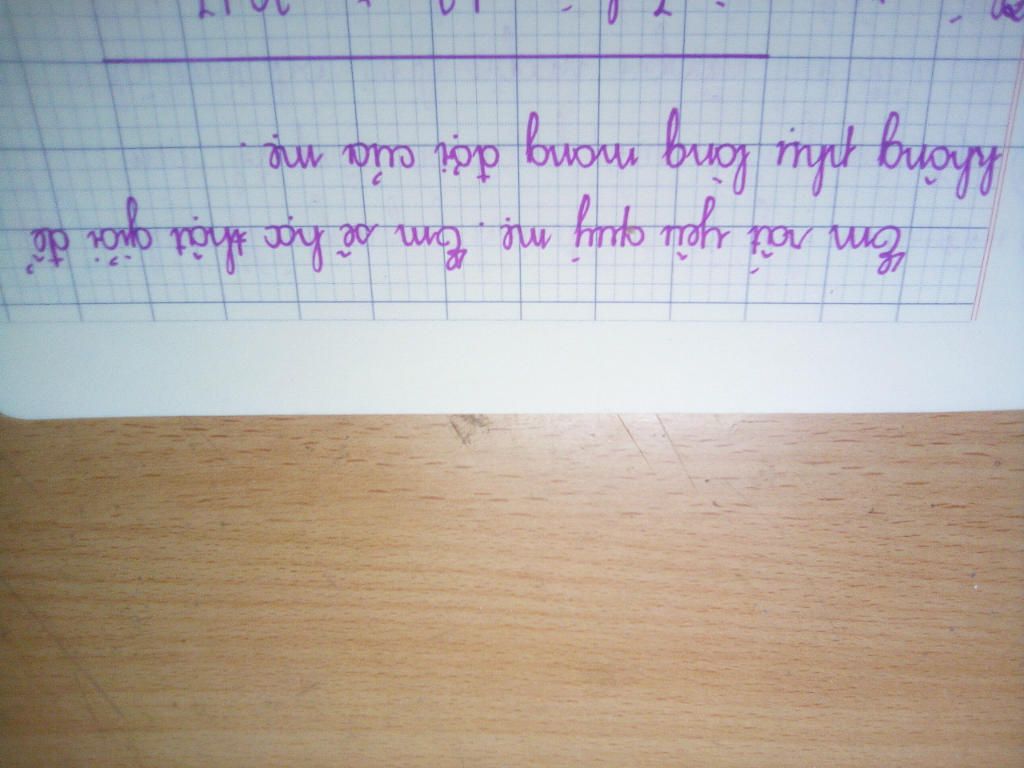 Em rất yêu quý mẹ. Em sẽ học thật giỏi để
không phụ lòng mong đợi của mẹ.